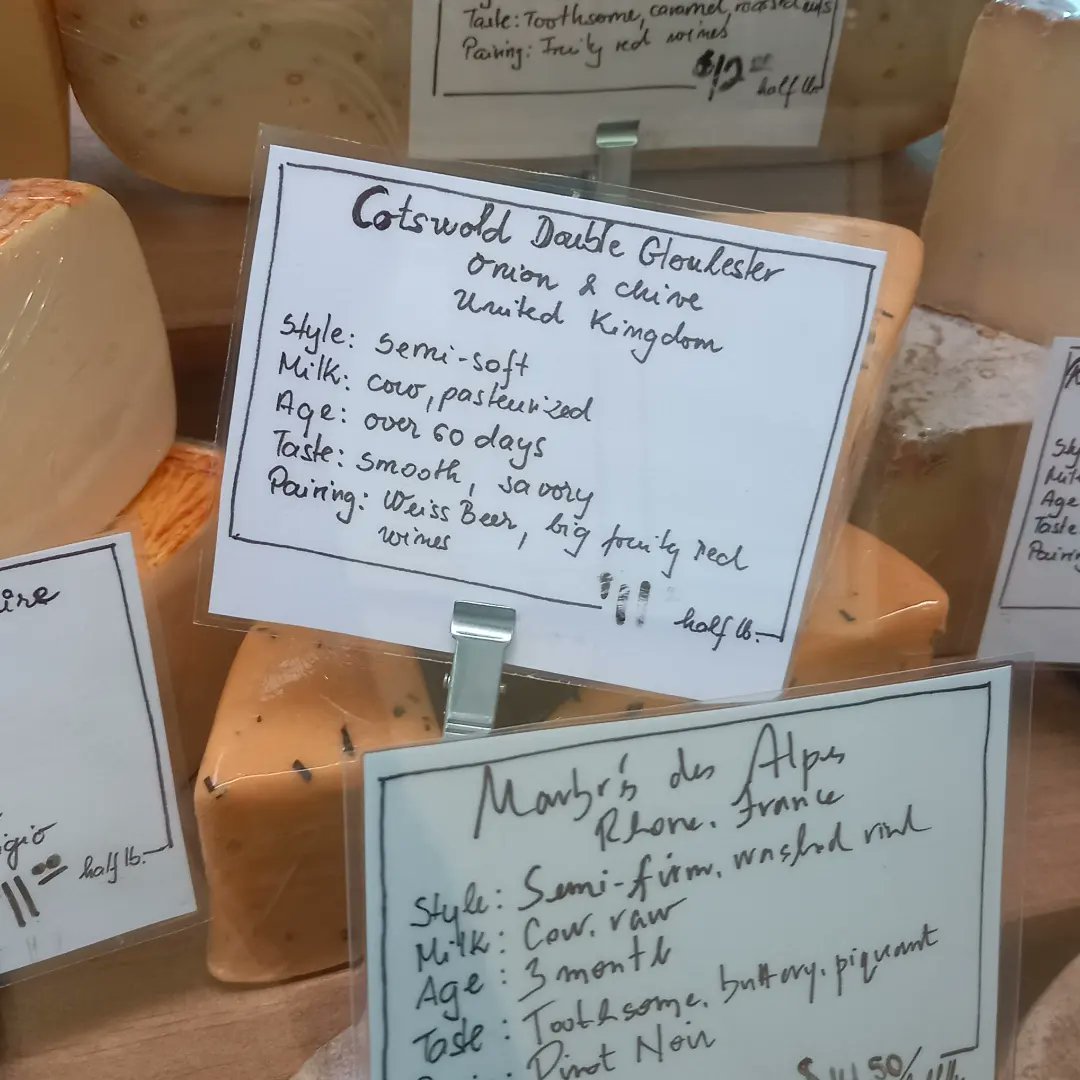 Taste: Toothsome, caramel, roasted nuts
Pairing: Fruity red wines
$12 half lb.
Cotswold Double Gloulester
Onion & chive
United Kingdom
Style: Semi-soft
Milk: cow, pasteurized
Age: over 60 days
Taste: smooth, savory
Pairing: Weiss Beer, big fruity red
wines
half lb.
ire
igio
11 00 half lb.
Sty
Milk
Age
Taste
Pairing
des Alpes
Rhone, France
Style: Semi-firm, washed rind
Milk: Cow, raw
Age: 3 month
Taste: Toothsome, buttery, piquant
Pinot Noir
50/